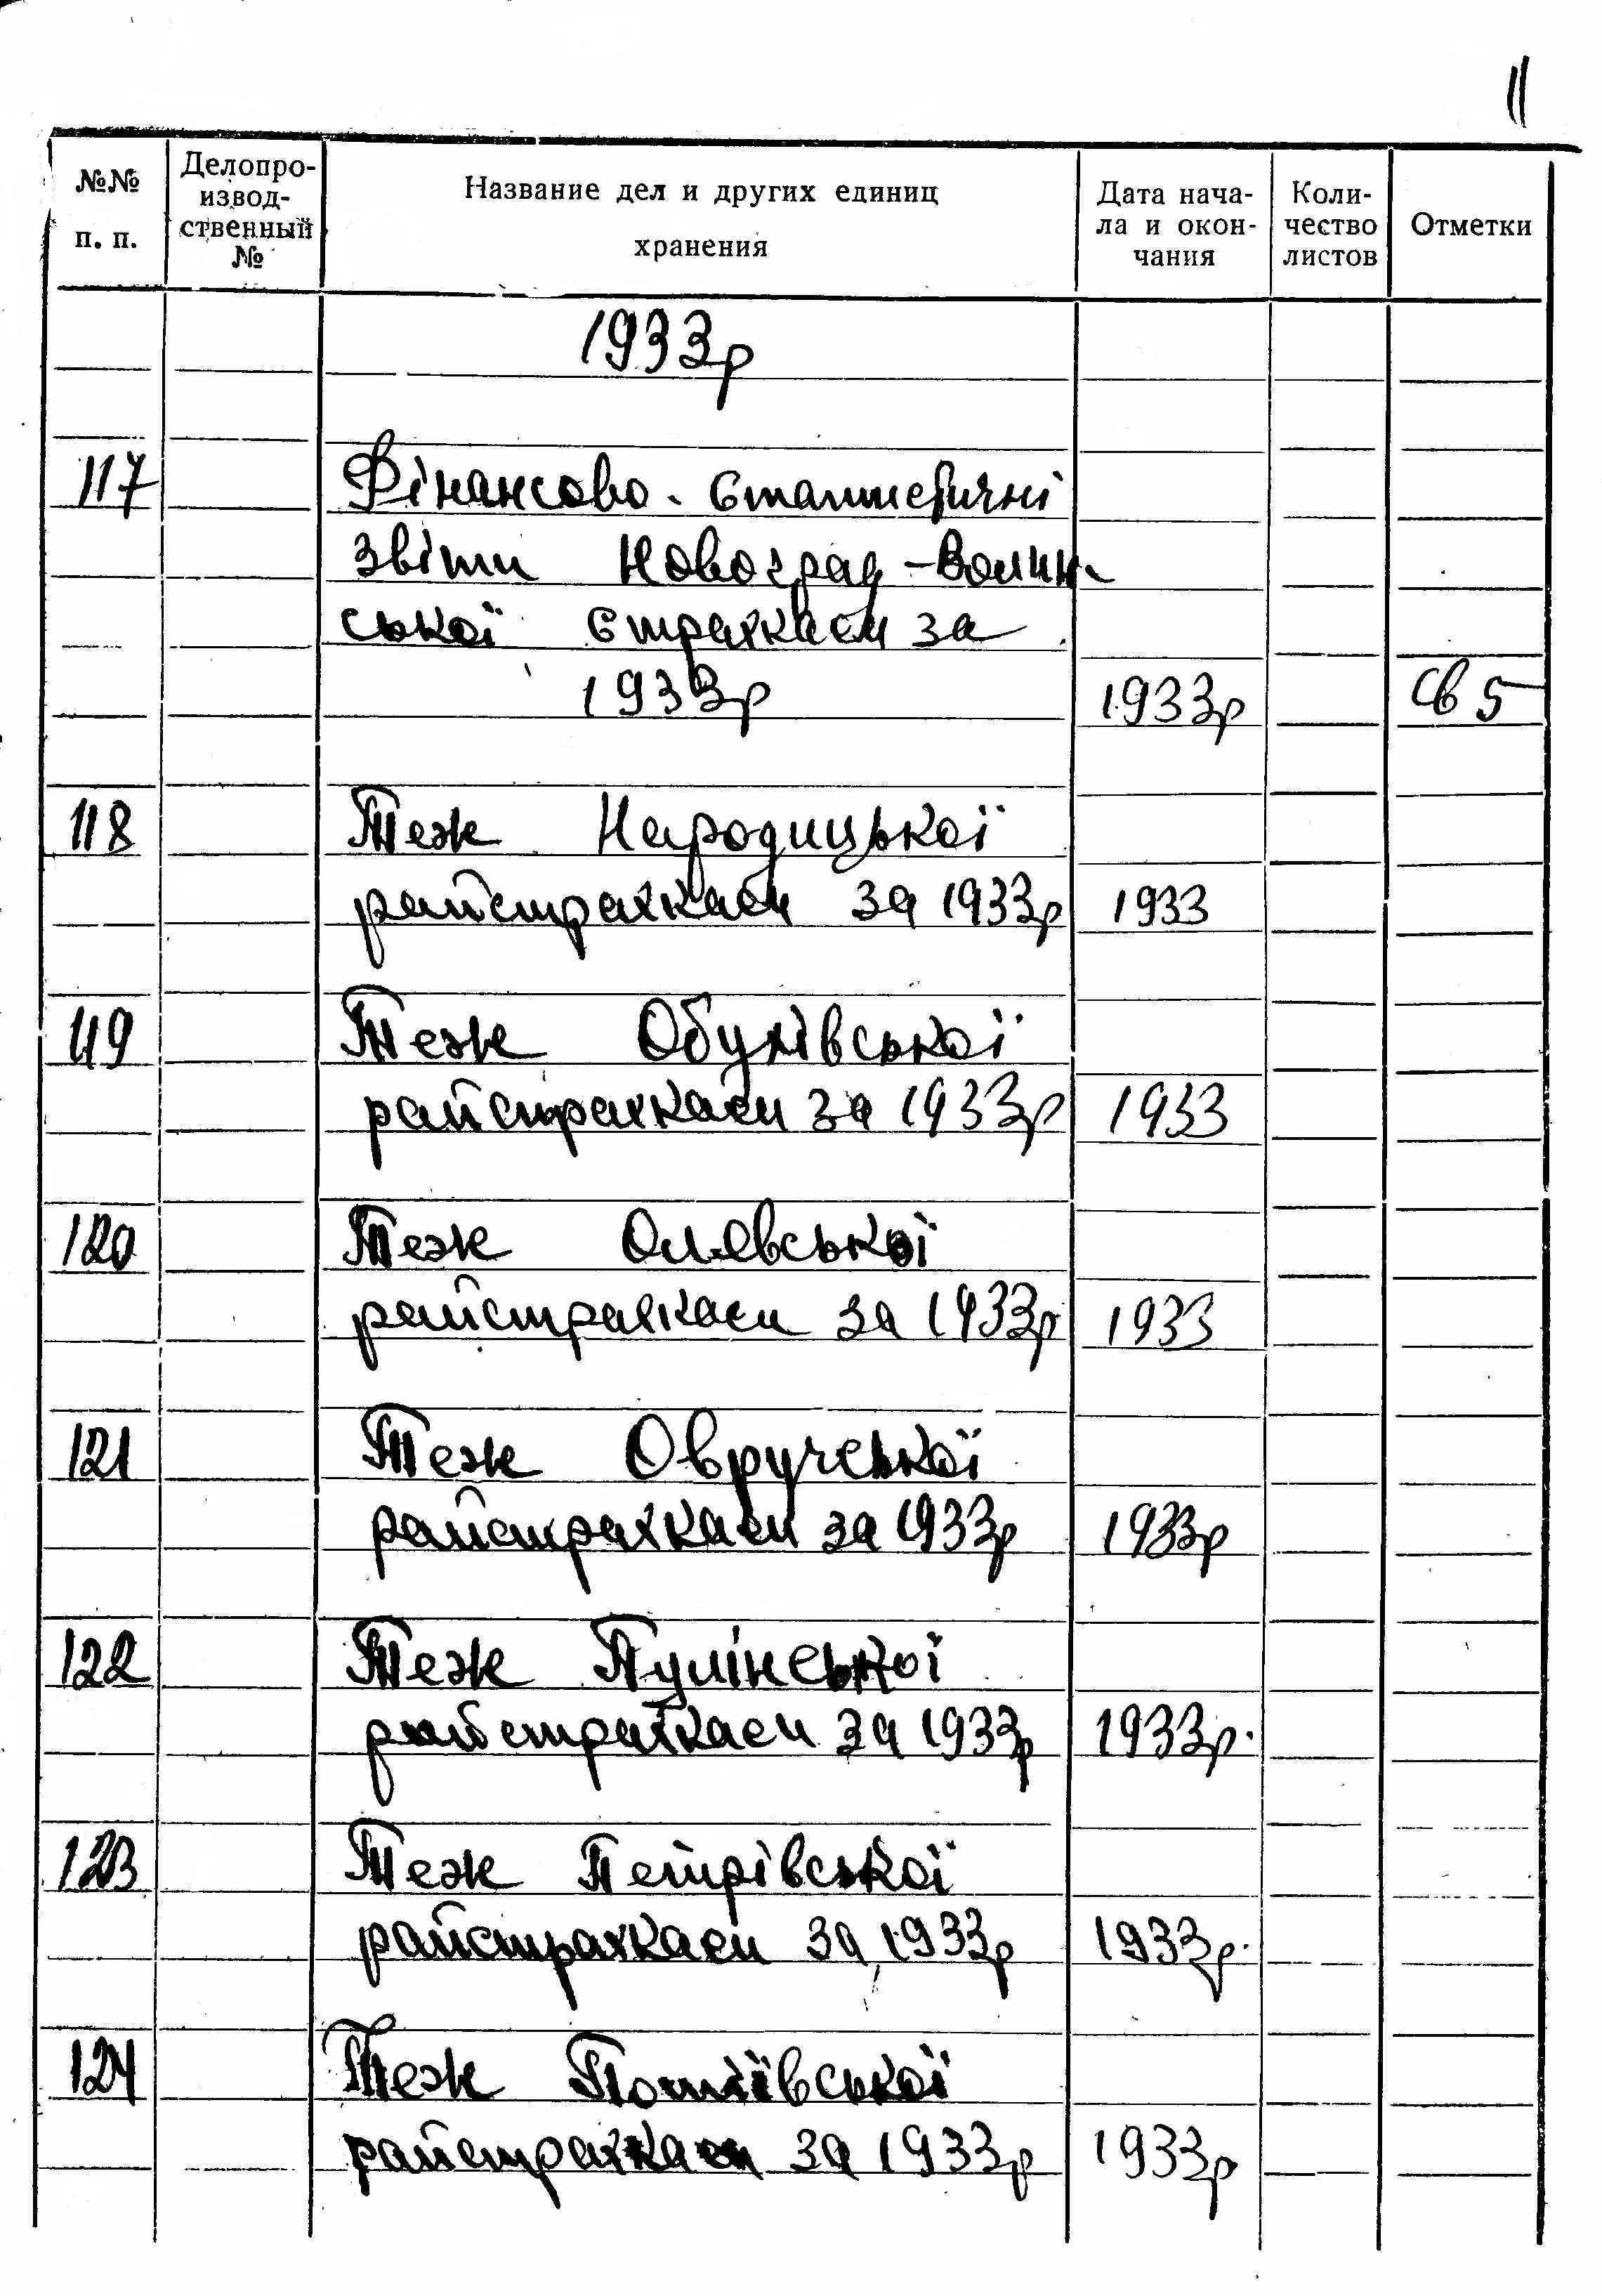 11
№№ п. п.
Делопро-
извод-
ственный
№
Название дел и других единиц
хранения
Дата нача-
ла и окон-
чания
Коли-
чество
листов
Отметки
1933р
117 Фінансово-статистичні
звіти Новоград-Волин-
ської страхкаси за
1933р 1933р св 5
118 Теж Народицької
райстрахкаси за 1933р 1933
119 Теж Обухівської
райстрахкаси за 1933р 1933
120 Теж Олевської
райстрахкаси за 1933р 1933
121 Теж Овруcької
райстрахкаси за 1933р 1933р
122 Теж Пулінської
райстрахкаси за 1933р 1933р.
123 Теж Петрівської
райстрахкаси за 1933р 1933р.
124 Теж Потіївської
райстрахкаси за 1933р 1933р